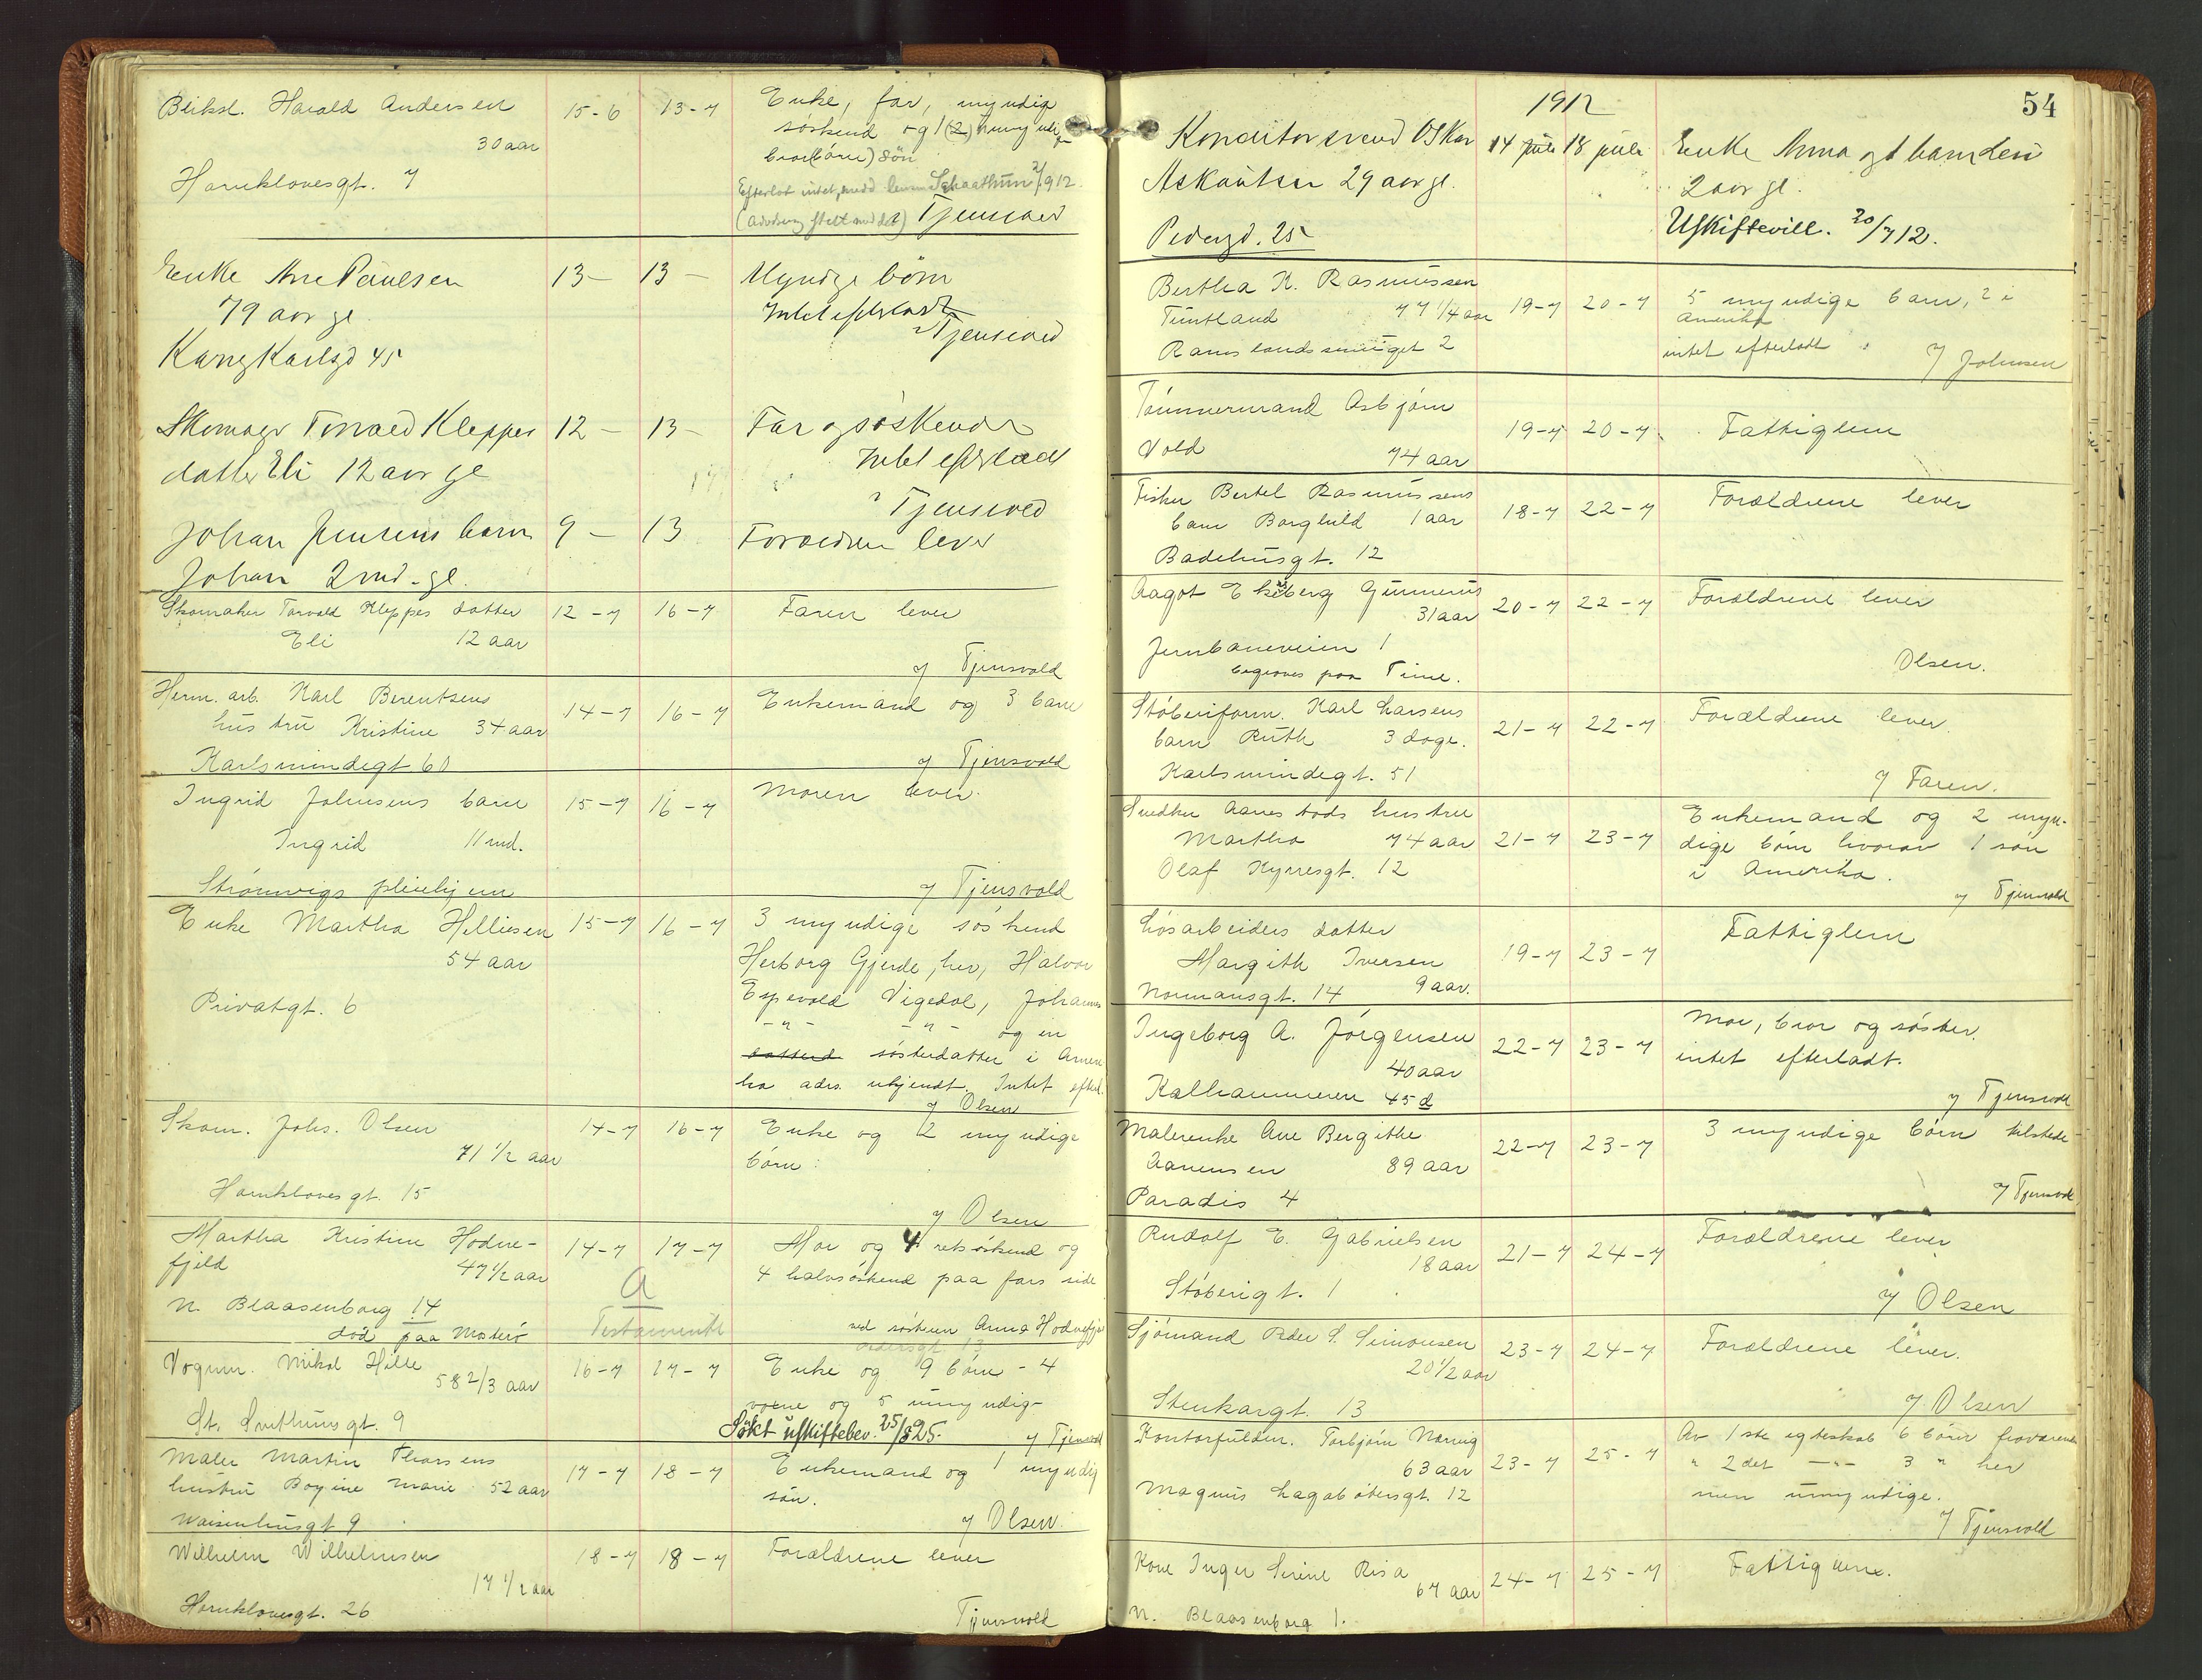 Bliksl. Harald Andersen 15-6 13-7 Enke, far, myndige
30 aar søskend og 1 (2) umyndige
barn (børn) søn
Harklovesgt. 7 Efterlot intet, 1912.
Tjensvold
Enke Ane Paulsen 13- 13- Myndige børn
79 aar gl. Intet efterladt
Kong Karlsgd 45 Tjensvold
Skomager Torvald Kleppes 12- 13- Far og søskende
datter Eli 12 aar gl Intet efterladt
Tjensvold
Johan Jensens barn 9- 13 Forældren lever
Johan 2 md. gl.
Skomaker Torvald Kleppes datter 12-7 16-7 Faren lever
Eli 12 aar
v/ Tjensvold
Herm. arb. Karl Berentsens 14-7 16-7 Enkemand og 3 barn
hustru Kristine 34 aar
Karlsmindegt. 60 v/ Tjensvold
Ingrid Johnsens barn 15-7 16-7 Moren lever.
Ingrid 11 md.
Strømvigs pleiehjem v/ Tjensvold
Enke Martha Helliesen 15-7 16-7 3 myndige søskend
54 aar Herborg Gjerde, her, Halvor
Privatgt. 6 Espevold Vigedal, Johannes
-"- -"- og en
datterd søsterdatter i Ameri
ka adrs. ukjendt. Intet efterl.
v/ Olsen
Skom. Johs. Olsen 14-7 16-7 Enke og 2 myndige
71 1/2 aar børn.
Harklovesgt. 15
v/ Olsen
Martha Kristine Hodne- 14-7 17-7 Mor og 4 retsøskend og
fjeld 47 1/2 aar a 4 halvsøskend paa fars side
N. Blaasenborg 14
død paa Mosterø Testamente ved søsteren Anna Hodnefje
Vognm. Mikal Hille 16-7 17-7 Enke og 9 børn - 4
58 2/3 aar voxne og 5 umyndig-
St. Svithunsgt. 9 Søkt uskiftebev. 25/8 25. v/ Tjensvold
Maler Martin Thorsens 17-7 18-7 Enkemand og 1 myndig
hustru Bogine Marie 52 aar søn.
Waisenhusgt 9 v/ Olsen.
Wilhelm Wilhelmsen 18-7 18-7 Forældrene lever
17 1/2 aar
Harklovesgt. 26 Tjensvold
54
1912
Konditorsvend Oskar 14 juli 18 juli Enke Anna og 1 barn
Askautsen 29 aar gl. 2 aar gl.
Pedersgd. 25 Uskiftevill. 20/7 12.
Bertha K. Rasmussen 19-7 20-7 5 myndige barn, 2 i
Tuntland 77 1/4 aar Amerika
Ramslandssmuget 2 intet efterladt v/ Johnsen
Tømmermand Asbjørn 19-7 20-7 Fattiglem
Vold 74 aar
Fisker Bertel Rasmussens 18-7 22-7 Forældrene lever
barn Borghild 1 aar
Badehusgt. 12
Aagot Ekeberg Gunnerus 20-7 22-7 Forældrene lever
31 aar
Jernbaneveien 1 Olsen.
begraves paa Time.
Støberiform. Karl Larsens 21-7 22-7 Forældrene lever.
barn Ruth 3 dage.
Karlsmindegt. 51 v/ Faren.
Snedker Aanestads hustru 21-7 23-7 Enkemand og 2 myn-
Martha 74 aar dige børn hvorav 1 søn
Olaf Kyrresgt. 12 i Amerika.
v/ Tjensvold
Løsarbeiders datter 19-7 23-7 Fattiglem
Margith Iversen
Normansgt. 14 9 aar.
Ingeborg A. Jørgensen 22-7 23-7 Mor, bror og søster.
40 aar intet efterladt.
Kalhammeren 45 d v/ Tjensvold
Malerenke Ane Bergithe 22-7 23-7 3 myndige børn tilstede
Aanensen 89 aar
Paradis 4 v/ Tjensvold
Rudolf E. Gabrielsen 21-7 24-7 Forældrene lever
18 aar
Støberigt. 1 v/ Olsen
Sjømand Peder S. Simonsen 23-7 24-7 Forældrene lever.
20 1/2 aar
Stenkargt. 13 v/ Olsen
Kontorfuldm. Torbjørn Nærvig 23-7 25-7 Av 1ste egteskab 6 børn fraværende
63 aar " 2det -"- 3 " her
Magnus Lagabøtersgt. 12 men umyndige.
v/ Tjensvold
Kone Inger Serine Risa 24-7 25-7 Fattigvæsn.
67 aar
N. Blaasenborg 1.